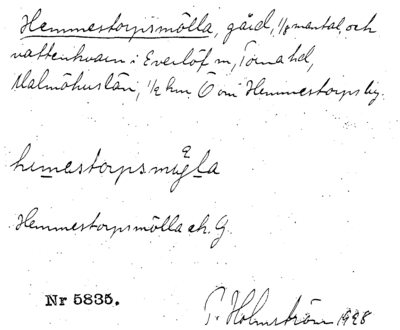 Hemmestorpsmölla, gård, 1/8 mantal, och
vattenkvarn i Everlöf sn, Torna hd,
Malmöhuslän, 1/2 km. Ö om Hemmestorps by.
hemestorpsmøla
Hemmestorpsmölla ek. G.
Nr 5835.
P. Holmström 1928